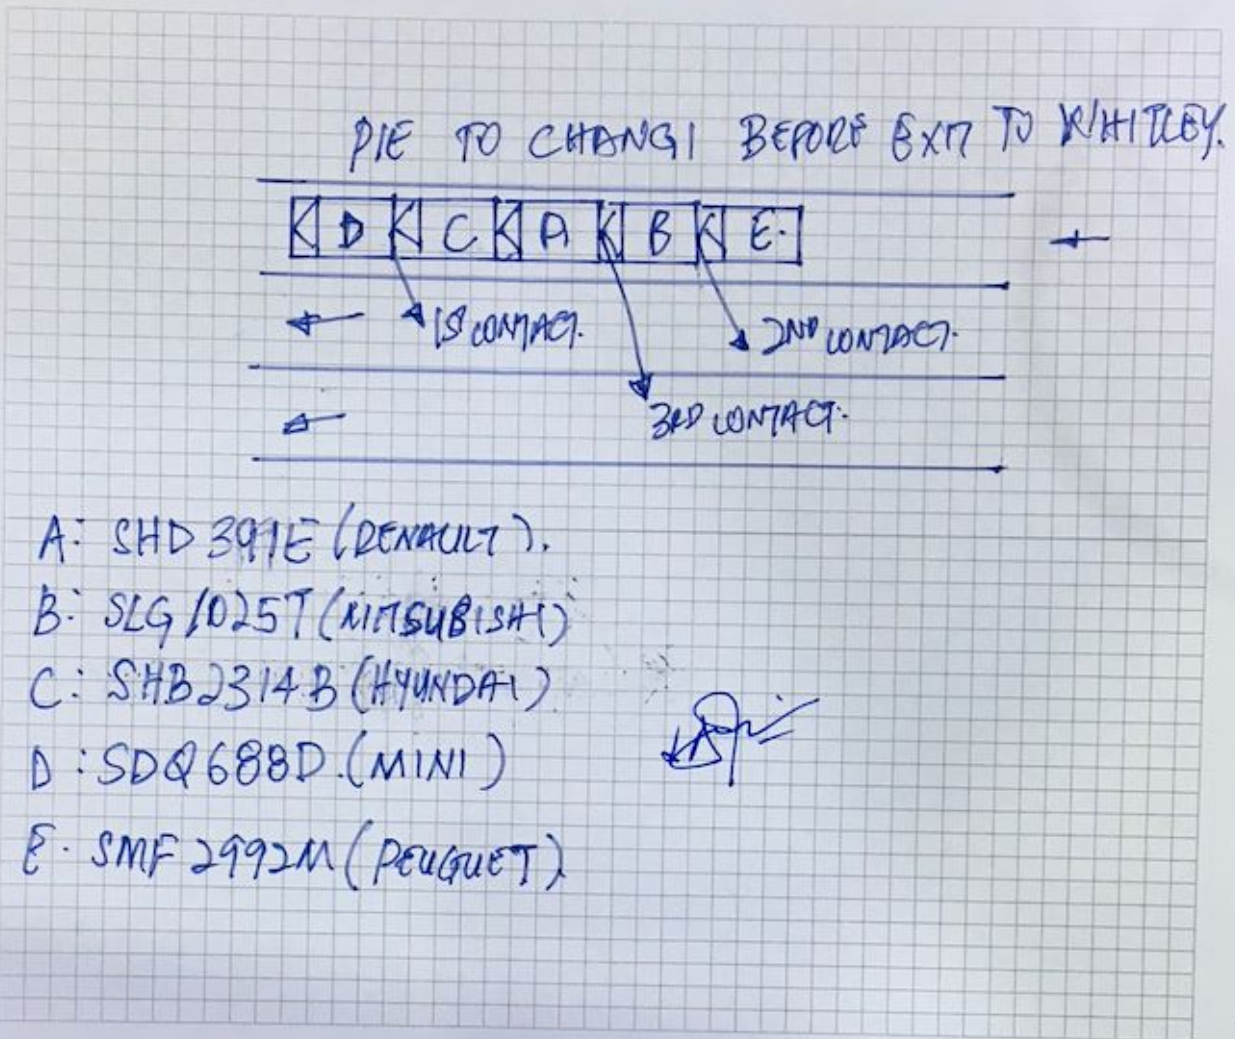 PIE TO CHANGI BEFORE EXIT TO WHITLEY.
D C A B E.
1ST CONTACT.
2ND CONTACT.
3RD CONTACT.
A: SHD 391E (RENAULT).
B: SLG 1025T (MITSUBISHI)
C: SHB2314B (HYUNDAI)
D: SDQ688D. (MINI)
E. SMF 2992M (PEUGUET)